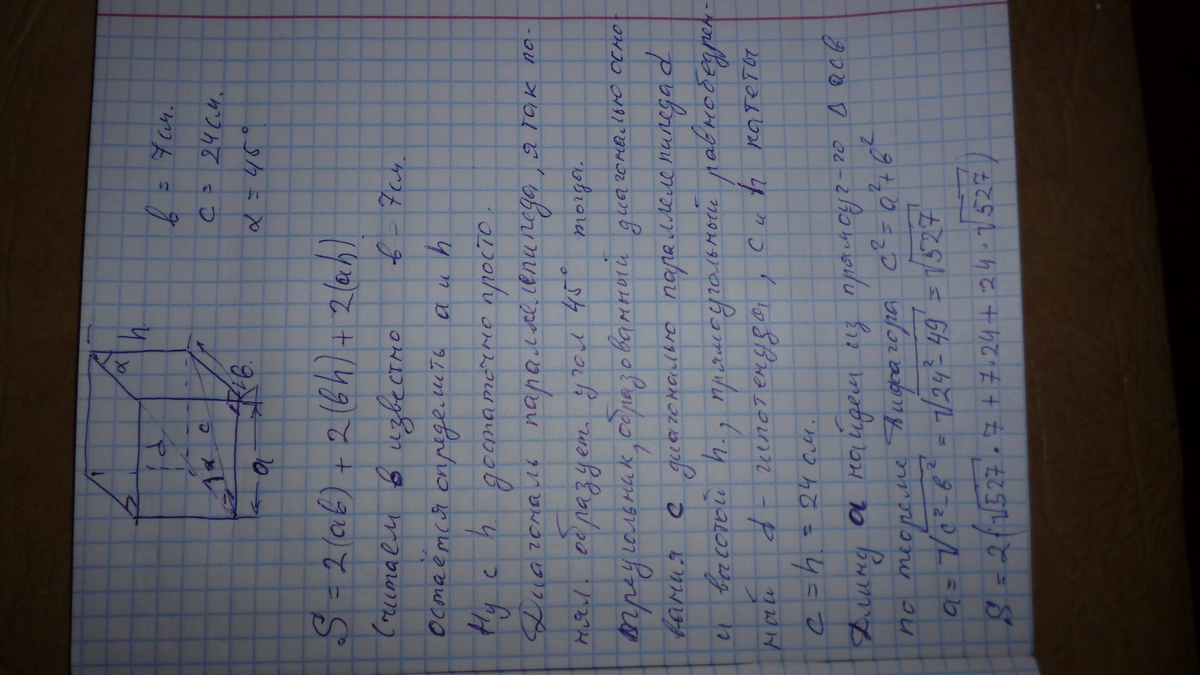 в = 7см.
с = 24см.
α = 45°
α
h.
d
c
α
в.
а
S = 2(ав) + 2(вh) + 2(аh)
Считаем в известно в = 7см.
остаётся определить а и h
Ну с h достаточно просто.
Диагональ параллелепипеда, я так по-
нял. образует угол 45° тогда.
треугольник, образованный диагональю осно-
вания с диагональю параллелепипеда d
и высотой h., прямоугольный равнобедрен-
ный d - гипотенуза, с и h катеты
с = h. = 24 см.
Длину а найдем из прямоуг-го Δ асв
по теореме Пифагора с² = а² + в²
а = √с² - в² = √24² - 49 = √527
S = 2(√527 · 7 + 7 · 24 + 24 · √527)